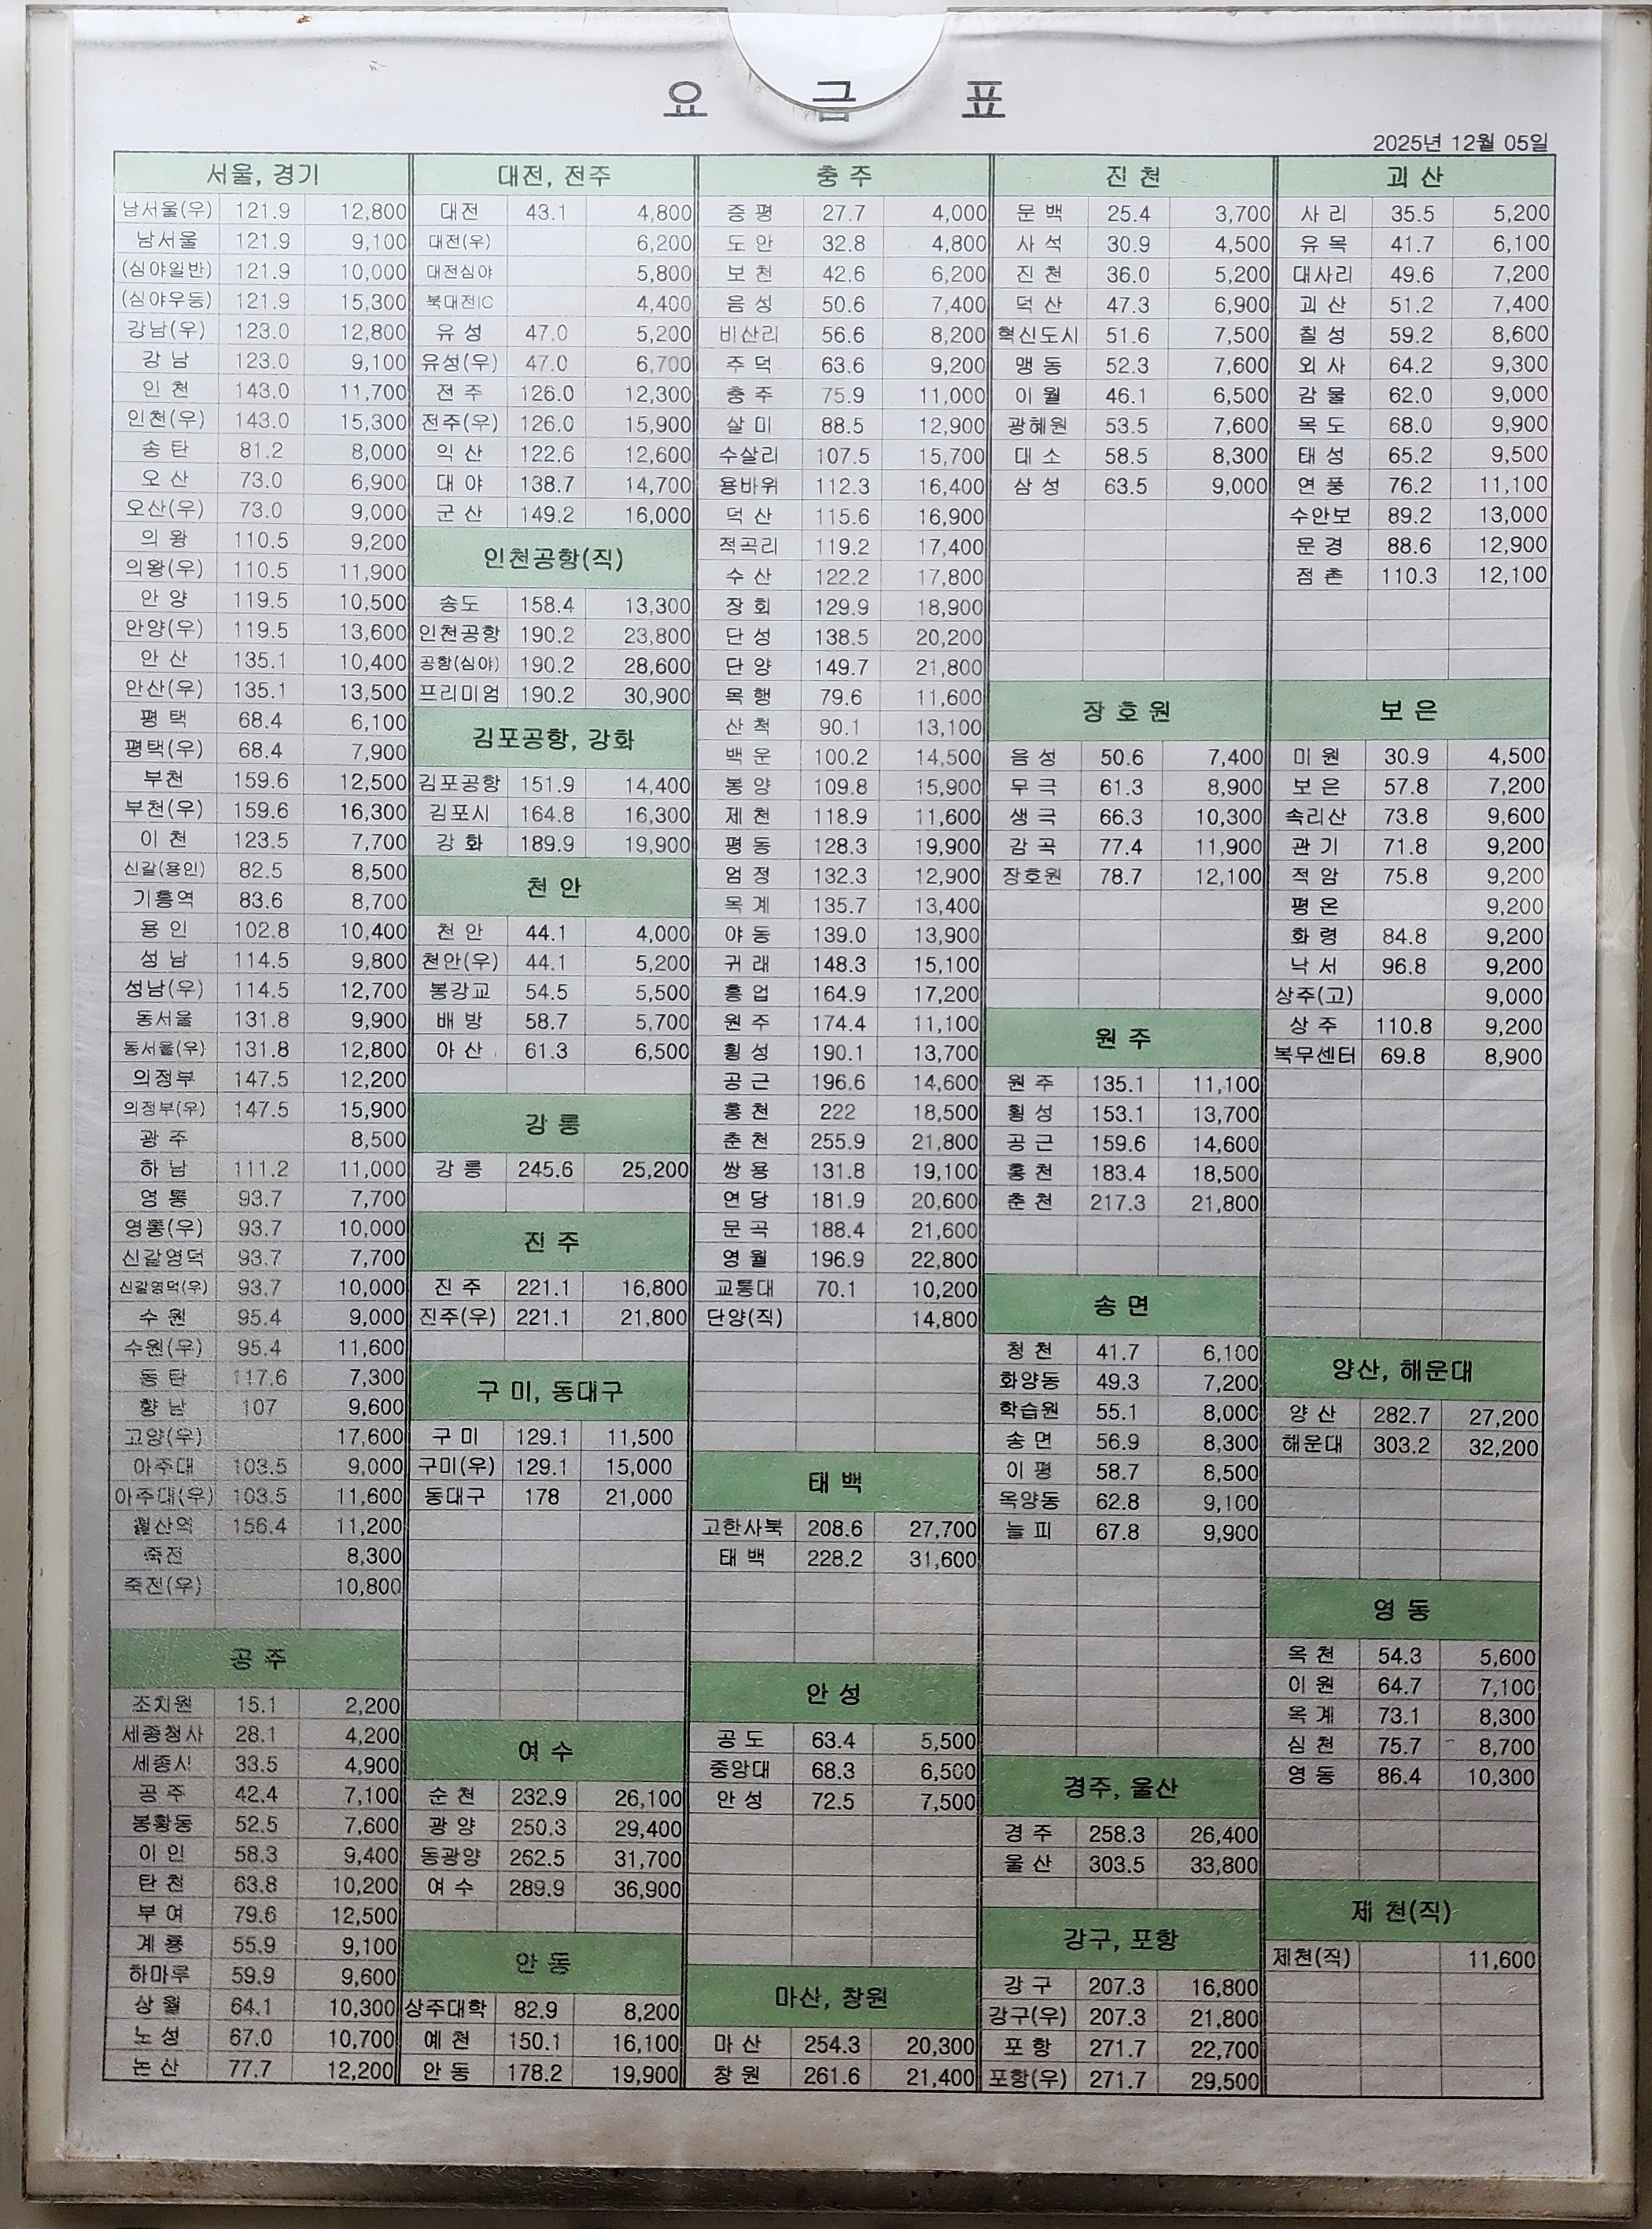 요 금 표
2025년 12월 05일
서울, 경기
남서울(우) 121.9 12,800
남서울 121.9 9,100
(심야일반) 121.9 10,000
(심야우등) 121.9 15,300
강남(우) 123.0 12,800
강 남 123.0 9,100
인 천 143.0 11,700
인천(우) 143.0 15,300
송 탄 81.2 8,000
오 산 73.0 6,900
오산(우) 73.0 9,000
의 왕 110.5 9,200
의왕(우) 110.5 11,900
안 양 119.5 10,500
안양(우) 119.5 13,600
안 산 135.1 10,400
안산(우) 135.1 13,500
평 택 68.4 6,100
평택(우) 68.4 7,900
부천 159.6 12,500
부천(우) 159.6 16,300
이 천 123.5 7,700
신갈(용인) 82.5 8,500
기흥역 83.6 8,700
용 인 102.8 10,400
성 남 114.5 9,800
성남(우) 114.5 12,700
동서울 131.8 9,900
동서울(우) 131.8 12,800
의정부 147.5 12,200
의정부(우) 147.5 15,900
광 주 8,500
하 남 111.2 11,000
영 통 93.7 7,700
영통(우) 93.7 10,000
신갈영덕 93.7 7,700
신갈영덕(우) 93.7 10,000
수 원 95.4 9,000
수원(우) 95.4 11,600
동 탄 117.6 7,300
향 남 107 9,600
고양(우) 17,600
아주대 103.5 9,000
아주대(우) 103.5 11,600
156.4 11,200
죽전 8,300
죽전(우) 10,800
공 주
조치원 15.1 2,200
세종청사 28.1 4,200
세종시 33.5 4,900
공 주 42.4 7,100
봉황동 52.5 7,600
이 인 58.3 9,400
탄 천 63.8 10,200
부 여 79.6 12,500
계 룡 55.9 9,100
하마루 59.9 9,600
상 월 64.1 10,300
노 성 67.0 10,700
논 산 77.7 12,200
대전, 전주
대전 43.1 4,800
대전(우) 6,200
대전심야 5,800
북대전IC 4,400
유 성 47.0 5,200
유성(우) 47.0 6,700
전 주 126.0 12,300
전주(우) 126.0 15,900
익 산 122.6 12,600
대 야 138.7 14,700
군 산 149.2 16,000
인천공항(직)
송도 158.4 13,300
인천공항 190.2 23,800
공항(심야) 190.2 28,600
프리미엄 190.2 30,900
김포공항, 강화
김포공항 151.9 14,400
김포시 164.8 16,300
강 화 189.9 19,900
천 안
천 안 44.1 4,000
천안(우) 44.1 5,200
봉강교 54.5 5,500
배 방 58.7 5,700
아 산 61.3 6,500
강 릉
강 릉 245.6 25,200
진 주
진 주 221.1 16,800
진주(우) 221.1 21,800
구 미, 동대구
구 미 129.1 11,500
구미(우) 129.1 15,000
동대구 178 21,000
여 수
순 천 232.9 26,100
광 양 250.3 29,400
동광양 262.5 31,700
여 수 289.9 36,900
안 동
상주대학 82.9 8,200
예 천 150.1 16,100
안 동 178.2 19,900
충 주
증 평 27.7 4,000
도 안 32.8 4,800
보 천 42.6 6,200
음 성 50.6 7,400
비산리 56.6 8,200
주 덕 63.6 9,200
충 주 75.9 11,000
살 미 88.5 12,900
수살리 107.5 15,700
용바위 112.3 16,400
덕 산 115.6 16,900
적곡리 119.2 17,400
수 산 122.2 17,800
장 회 129.9 18,900
단 성 138.5 20,200
단 양 149.7 21,800
목 행 79.6 11,600
산 척 90.1 13,100
백 운 100.2 14,500
봉 양 109.8 15,900
제 천 118.9 11,600
평 동 128.3 19,900
엄 정 132.3 12,900
목 계 135.7 13,400
야 동 139.0 13,900
귀 래 148.3 15,100
흥 업 164.9 17,200
원 주 174.4 11,100
횡 성 190.1 13,700
공 근 196.6 14,600
홍 천 222 18,500
춘 천 255.9 21,800
쌍 용 131.8 19,100
연 당 181.9 20,600
문 곡 188.4 21,600
영 월 196.9 22,800
교통대 70.1 10,200
단양(직) 14,800
태 백
고한사북 208.6 27,700
태 백 228.2 31,600
안 성
공 도 63.4 5,500
중앙대 68.3 6,500
안 성 72.5 7,500
마산, 창원
마 산 254.3 20,300
창 원 261.6 21,400
진 천
문 백 25.4 3,700
사 석 30.9 4,500
진 천 36.0 5,200
덕 산 47.3 6,900
혁신도시 51.6 7,500
맹 동 52.3 7,600
이 월 46.1 6,500
광혜원 53.5 7,600
대 소 58.5 8,300
삼 성 63.5 9,000
장 호 원
음 성 50.6 7,400
무 극 61.3 8,900
생 극 66.3 10,300
감 곡 77.4 11,900
장호원 78.7 12,100
원 주
원 주 135.1 11,100
횡 성 153.1 13,700
공 근 159.6 14,600
홍 천 183.4 18,500
춘 천 217.3 21,800
송 면
청 천 41.7 6,100
화양동 49.3 7,200
학습원 55.1 8,000
송 면 56.9 8,300
이 평 58.7 8,500
옥양동 62.8 9,100
늘 피 67.8 9,900
경주, 울산
경 주 258.3 26,400
울 산 303.5 33,800
강구, 포항
강 구 207.3 16,800
강구(우) 207.3 21,800
포 항 271.7 22,700
포항(우) 271.7 29,500
괴 산
사 리 35.5 5,200
유 목 41.7 6,100
대사리 49.6 7,200
괴 산 51.2 7,400
칠 성 59.2 8,600
외 사 64.2 9,300
감 물 62.0 9,000
목 도 68.0 9,900
태 성 65.2 9,500
연 풍 76.2 11,100
수안보 89.2 13,000
문 경 88.6 12,900
점 촌 110.3 12,100
보 은
미 원 30.9 4,500
보 은 57.8 7,200
속리산 73.8 9,600
관 기 71.8 9,200
적 암 75.8 9,200
평 온 9,200
화 령 84.8 9,200
낙 서 96.8 9,200
상주(고) 9,000
상 주 110.8 9,200
복무센터 69.8 8,900
양산, 해운대
양 산 282.7 27,200
해운대 303.2 32,200
영 동
옥 천 54.3 5,600
이 원 64.7 7,100
옥 계 73.1 8,300
심 천 75.7 8,700
영 동 86.4 10,300
제 천(직)
제천(직) 11,600